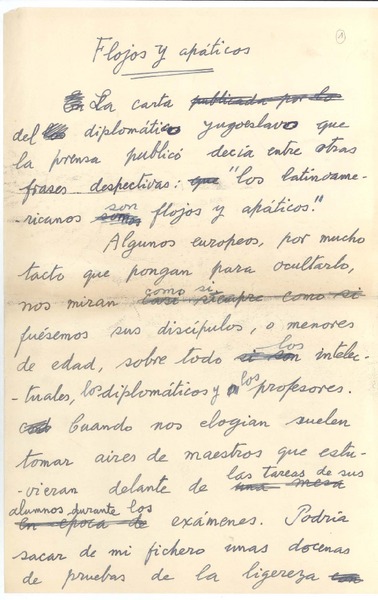 1
Flojos y apáticos
La carta publicada por lo
del diplomático yugoeslavo que
la prensa publicó decía entre otras
frases despectivas: que "los latinoame-
-ricanos son somos flojos y apáticos."
Algunos europeos, por mucho
tacto que pongan para ocultarlo,
nos miran como si casi siempre como si
fuésemos sus discípulos, o menores
de edad, sobre todo si son los intelec-
tuales, los diplomáticos y los profesores.
Cuando nos elogian suelen
tomar aires de maestros que estu-
-vieran delante de las tareas de sus una mesa
alumnos durante los en época de exámenes. Podría
sacar de mi fichero unas docenas
de pruebas de la ligereza con